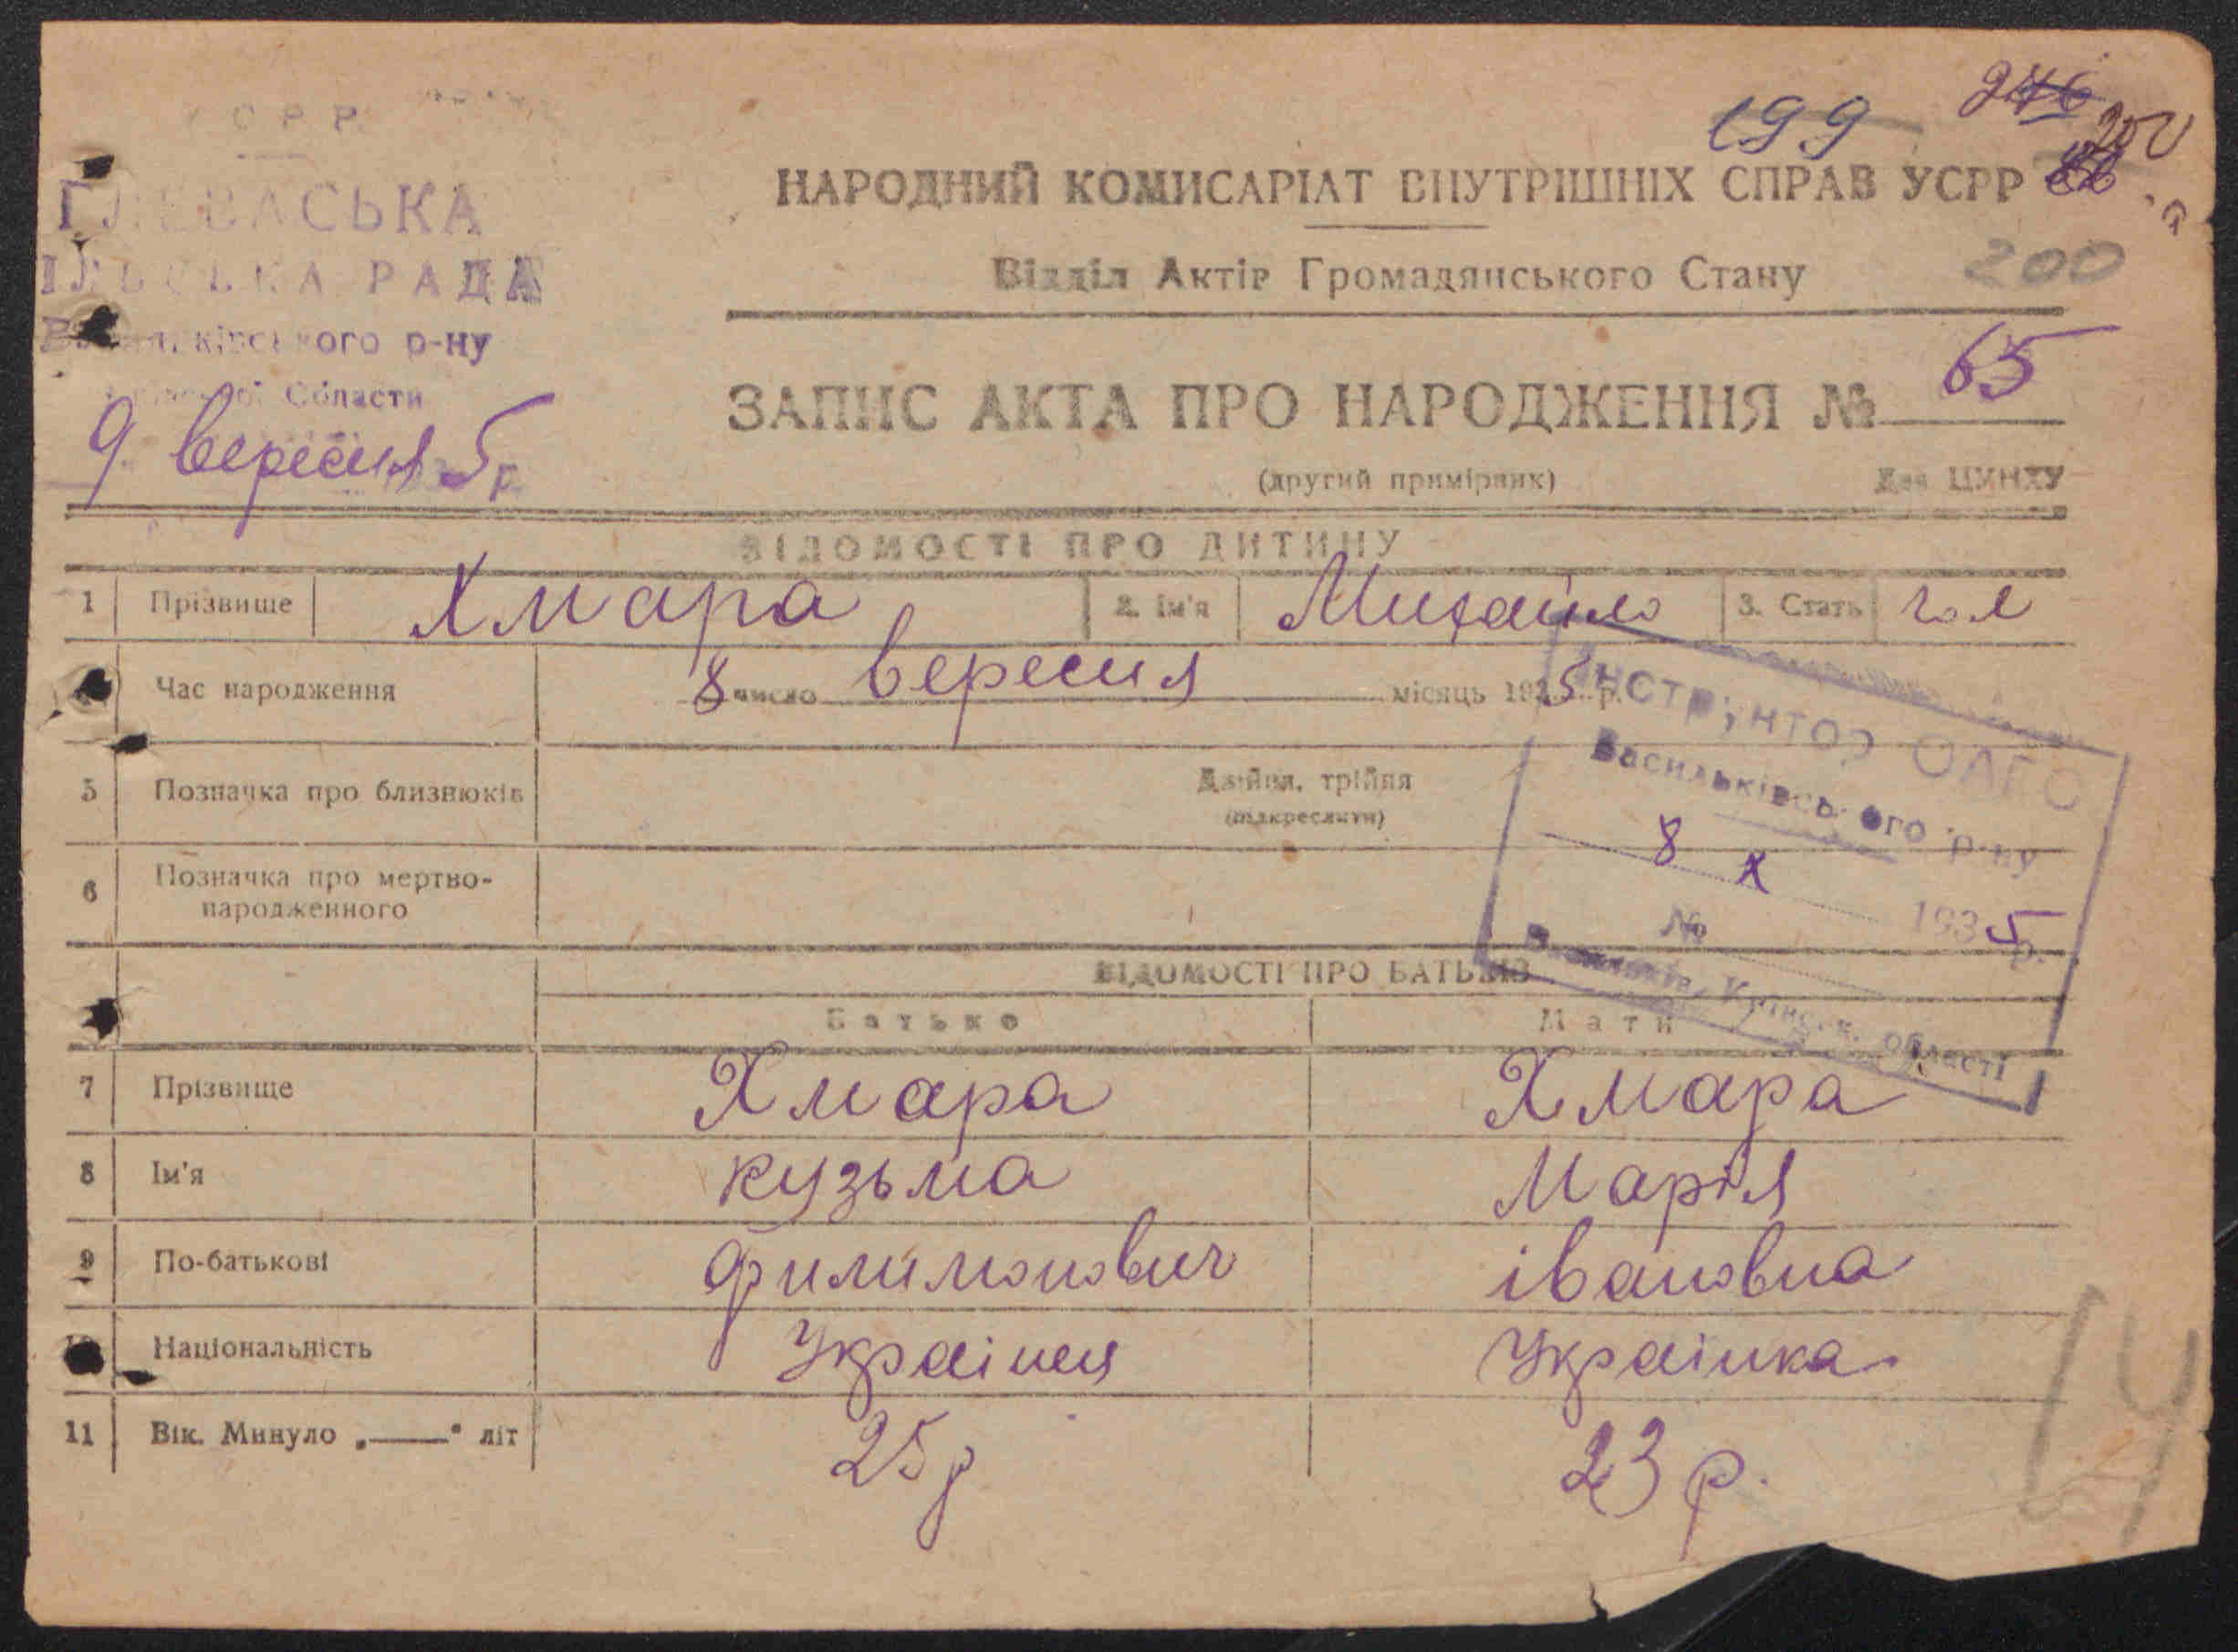 УСРР
ГЛЕВАСЬКА
СІЛЬСЬКА РАДА
Васильківського р-ну
Області
9 вересня 5 р
199
246
200
НАРОДНИЙ КОМИСАРІАТ ВНУТРІШНІХ СПРАВ УСРР
Відділ Актів Громадянського Стану
200
ЗАПИС АКТА ПРО НАРОДЖЕННЯ № 65
(другий примірник) Для ЦУНХУ
ВІДОМОСТІ ПРО ДИТИНУ
1 Прізвище Хмара 2. Ім'я Михайло 3. Стать чол
Час народження 8 число вересня місяць 1935 р.
5 Позначка про близнюків Двійня, трійня
(підкреслити)
6 Позначка про мертво-
народженного
Інструктор ОАГС
Васильківського р-ну
8 X 1935 р.
№
Васильків, Київськ. області
ВІДОМОСТІ ПРО БАТЬКІВ
Батько Мати
7 Прізвище Хмара Хмара
8 Ім'я Кузьма Марія
9 По-батькові Филимонович івановна
10 Національність Українця Українка
11 Вік. Минуло „——“ літ 25 р 23 р.